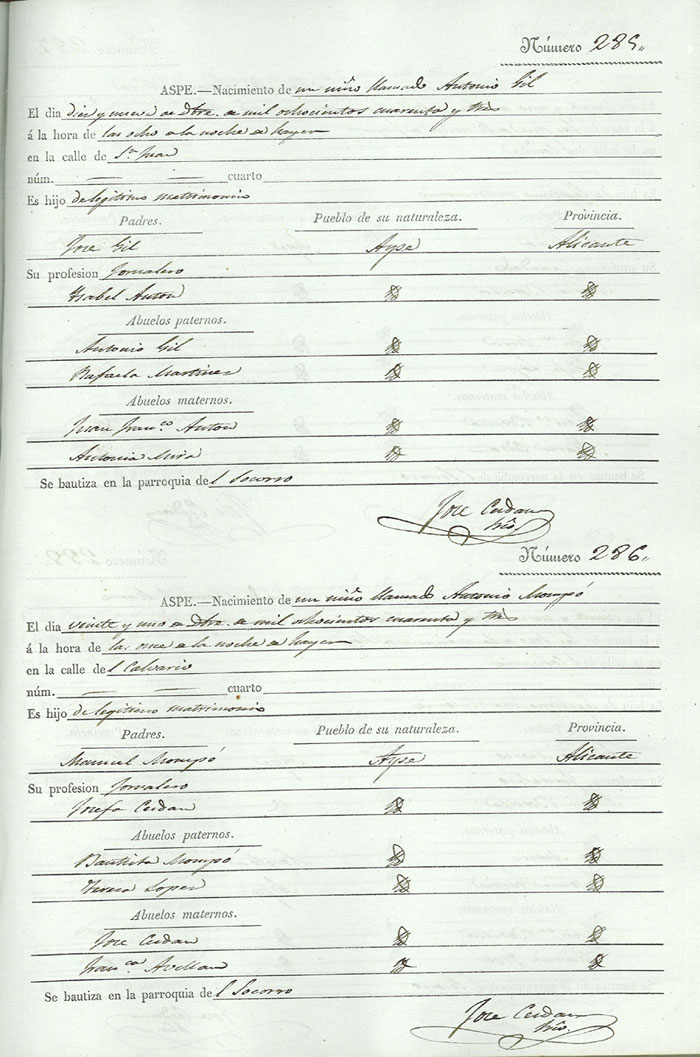 Número 285.
ASPE.—Nacimiento de un niño llamado Antonio Gil
El dia diez y nueve de Dbre. de mil ochocientos cuarenta y tres
á la hora de las ocho de la noche de hayer
en la calle de Sn. Juan
núm. — — cuarto
Es hijo de legitimo matrimonio
Padres. Pueblo de su naturaleza. Provincia.
Jose Gil Aspe Alicante
Su profesion Jornalero
Ysabel Anton
Abuelos paternos.
Antonio Gil
Rafaela Martinez
Abuelos maternos.
Juan Franco. Anton
Antonia Mira
Se bautiza en la parroquia del Socorro
Jose Cerdan
Srio.
Número 286.
ASPE.—Nacimiento de un niño llamado Antonio Mompó
El dia veinte y uno de Dbre. de mil ochocientos cuarenta y tres
á la hora de las once de la noche de hayer
en la calle del Calvario
núm. — — cuarto
Es hijo de legitimo matrimonio
Padres. Pueblo de su naturaleza. Provincia.
Manuel Mompó Aspe Alicante
Su profesion Jornalero
Josefa Cerdan
Abuelos paternos.
Bautista Mompó
Teresa Lopez
Abuelos maternos.
Jose Cerdan
Franca. Avellan
Se bautiza en la parroquia del Socorro
Jose Cerdan
Srio.